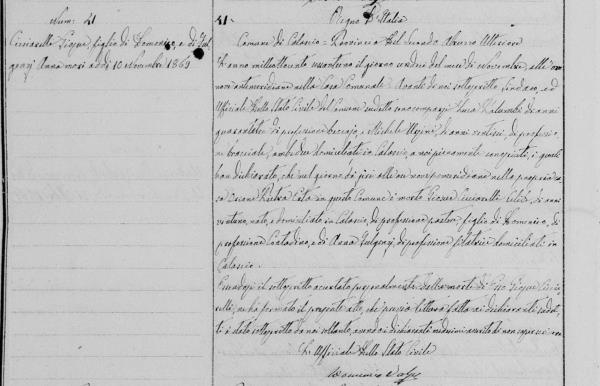 Num: 21
Ciccarelli Giosuè, figlio di Domenico, e di Ful
genzj Anna morì addì 10 Novembre 1861
21.
Regno d'Italia
Comune di Calascio - Provincia del Secondo Abruzzo Ulteriore
L'anno milleottocento sessantuno il giorno undici del mese di Novembre, alle ore
nove antemeridiane nella Casa Comunale. Avanti di noi sottoscritto Sindaco, ed
Uffiziale dello Stato Civile del Comune suddetto son comparsi di anni
di professione beccajo, e Michele di anni ventisei, di professio
ne bracciale, ambidue domiciliati in Calascio, a noi pienamente cogniti, i quali
han dichiarato, che nel giorno di jeri alle ore nove pomeridiane nella propria ca
sa Strada in questo Comune è morto Giosuè Ciccarelli Celibe, di anni
ventuno, nato, e domiciliato in Calascio, di professione pastore, figlio di Domenico, di
professione Contadino, e di Anna Fulgenzj, di professione filatrice domiciliati in
Calascio.
Essendosi il sottoscritto accertato personalmente della morte di esso Giosuè Cicca
relli, ne ha formato il presente atto, che previa lettura fatta ai dichiaranti sudet
ti è stato sottoscritto da noi soltanto, avendo i dichiaranti medesimi asserito di non sapere scri
L'Uffiziale dello Stato Civile
Domenico